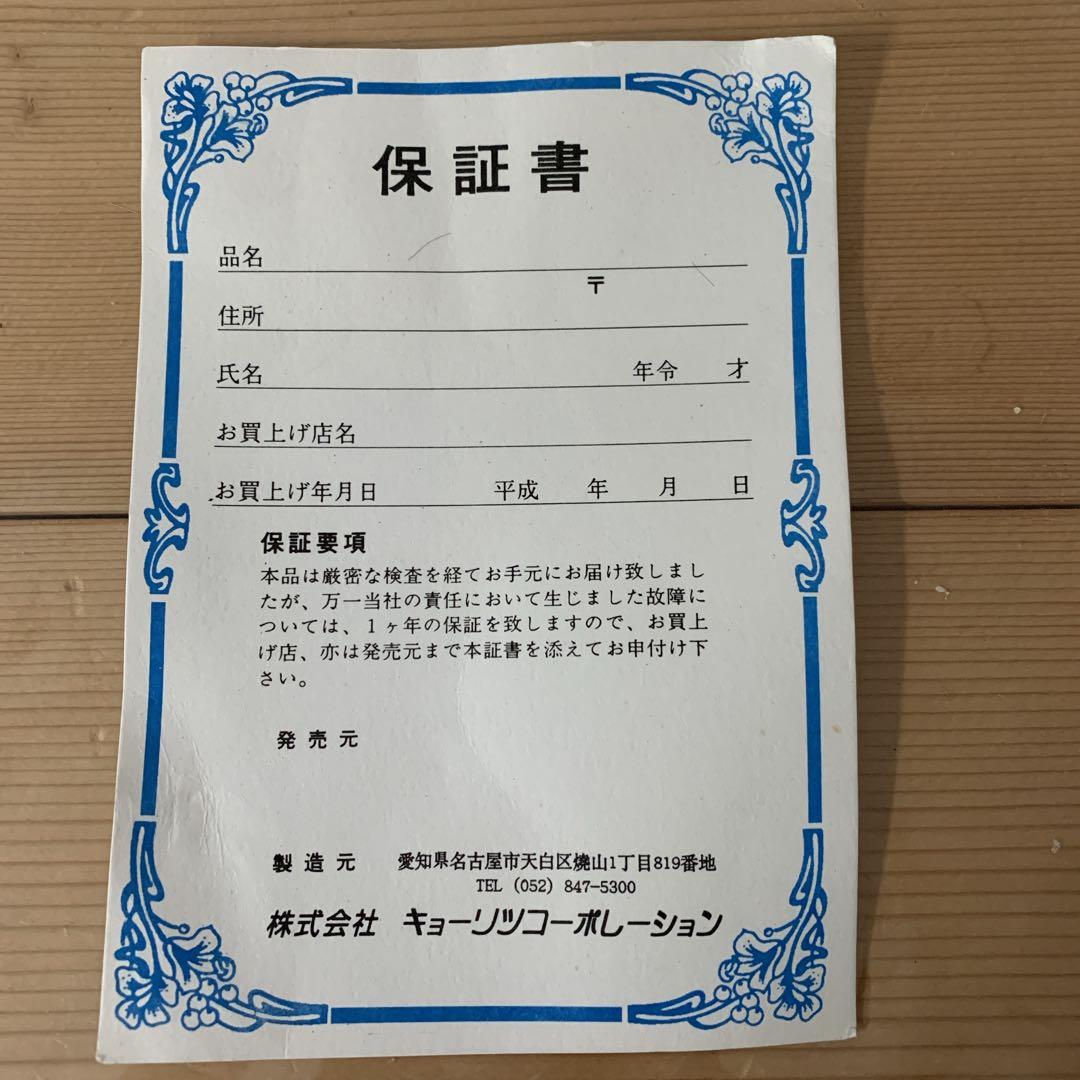 保証書
品名
〒
住所
氏名 年令 才
お買上げ店名
お買上げ年月日 平成 年 月 日
保証要項
本品は厳密な検査を経てお手元にお届け致しまし
たが、万一当社の責任において生じました故障に
ついては、1ヶ年の保証を致しますので、お買上
げ店、亦は発売元まで本証書を添えてお申付け下
さい。
発売元
製造元 愛知県名古屋市天白区焼山1丁目819番地
TEL (052) 847-5300
株式会社 キョーリツコーポレーション